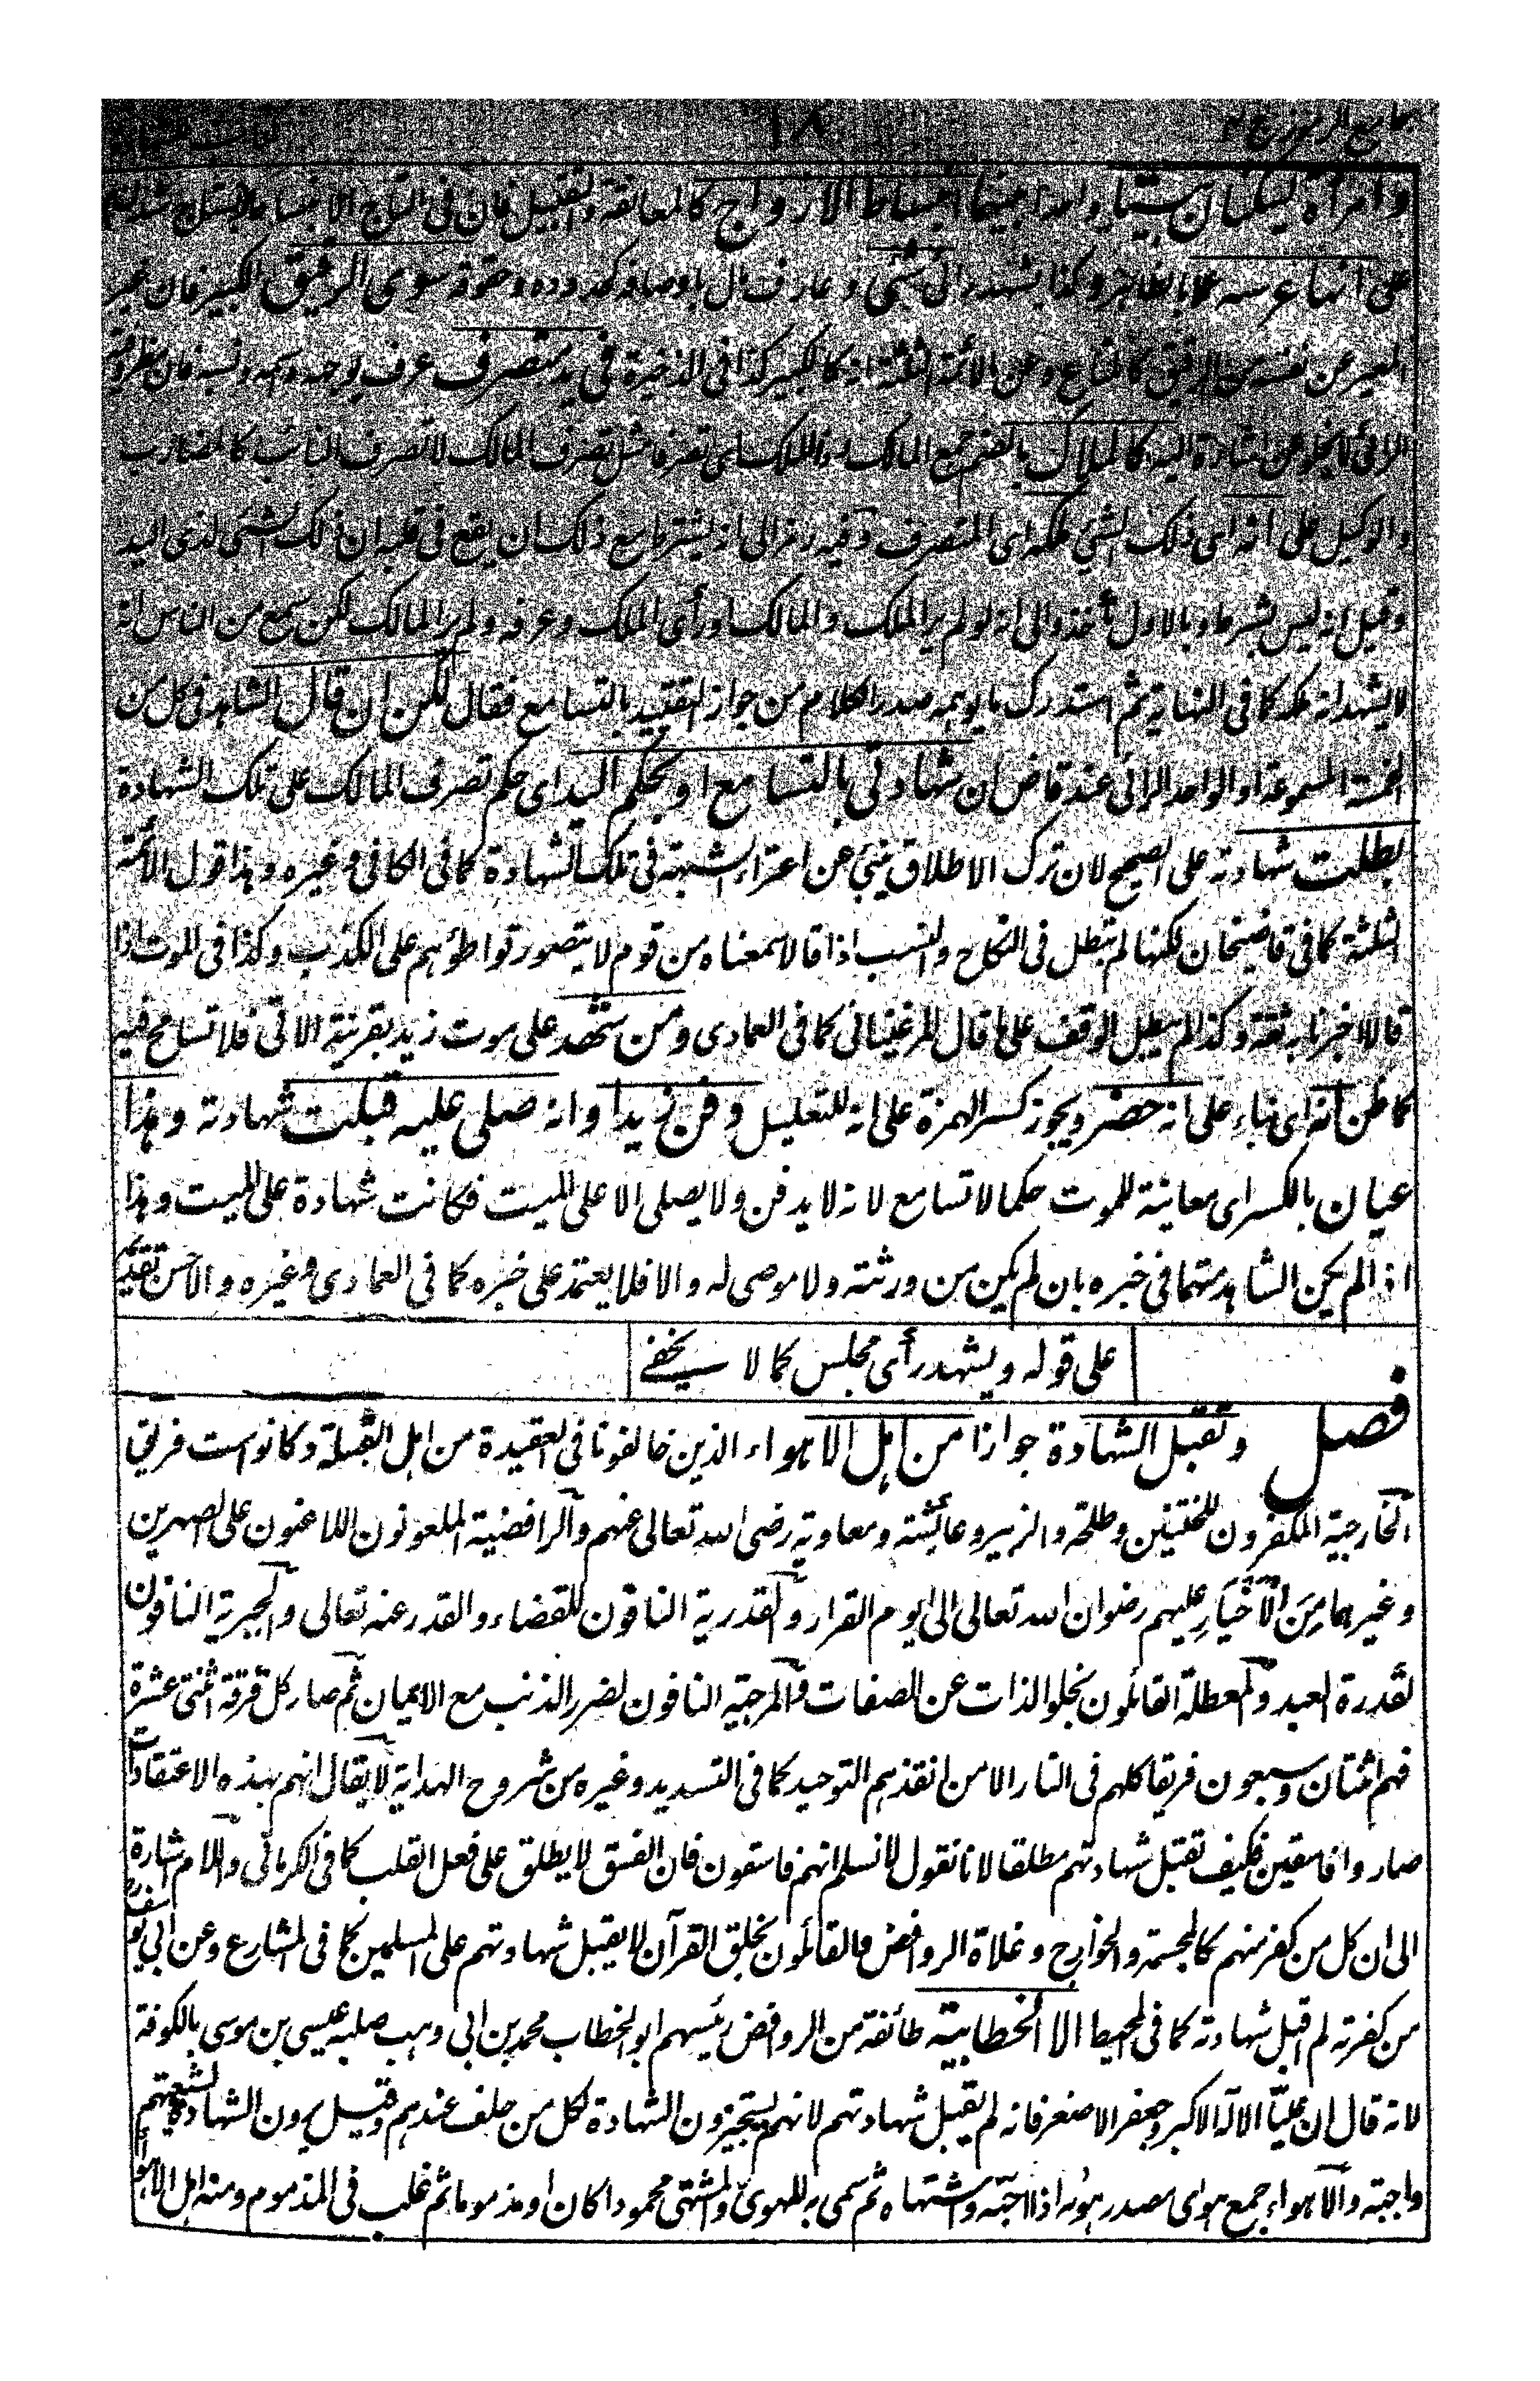 جامع الرموز ج ٢
١٨
وامرأة يسكنان بيتا واحدا بينهما انبساط الازواج كالمعانقة والتقبيل فان فى النتائج الانبساط
على انها عرسه عملا بالظاهر وكذا يشهد رائى شئ وعارف بال باوصافه كحدوده وحقوقه سوى الرقيق الكبير فان غير
المعبر عن نفسه من الرقيق كالمتاع وعن الائمة الثلثة انه كالكبير كذا فى الذخيرة فى يد متصرف عرف بوجهه واسمه ونسبه فان
الرائى لا يخلو عن اشارة اليه كالملاك بالضم جمع المالك او الملك اى تصرفا مثل تصرف المالك لا تصرف النائب كالمضارب
والوكيل على انه اى ذلك الشئ ملكه اى المتصرف وفيه رمز الى انه يشترط مع ذلك ان يقع فى قلبه ان ذلك الشئ لذى اليد
وقيل انه ليس بشرط وبالاول نأخذ والى انه لو لم ير الملك والمالك او رأى الملك وعرفه ولم ير المالك لكن سمع من الناس انه
لا يشهد انه ملكه كما فى النهاية ثم استدرك ما يوهمه صدر الكلام من جواز التقييد بالتسامع فقال لكن ان قال الشاهد فى كل من
الخمسة المسموعة او الواحد الرائى عند قاض ان شهادتى بالتسامع او بحكم اليد اى حكم تصرف المالك على تلك الشهادة
بطلت شهادته على الصحيح لان ترك الاطلاق ينبئ عن اعتراء الشبهة فى تلك الشهادة كما فى الكافى وغيره وهذا قول الائمة
الثلثة كما فى قاضيخان لكنها لم تبطل فى النكاح والنسب اذا قالا سمعناه من قوم لا يتصور تواطؤهم على الكذب وكذا فى الموت اذا
قالا اخبرنا به ثقة وكذا لم يبطل الوقف على ما قال المرغينانى كما فى العمادى ومن شهد على موت زيد بقرينة الآتى فلا تسامح فيه
كما ظن انه اى بناء على انه حضر ويجوز كسر الهمزة على انه للتعليل دفن زيد او انه صلى عليه قبلت شهادته وهذا
عيان بالكسر اى معاينة للموت حكما لا تسامع لانه لا يدفن ولا يصلى الا على الميت فكانت شهادة على الميت وهذا
اذا لم يكن الشاهد متهما فى خبره بان لم يكن من ورثته ولا موصى له والا فلا يعتمد على خبره كما فى العمادى وغيره والاحسن تقديمه
على قوله ويشهد رأى مجلس كما لا يخفى
فصل وتقبل الشهادة جوازا من اهل الاهواء الذين خالفونا فى العقيدة من اهل القبلة وكانوا ست فريق
الخارجية المكفرون للختنين وطلحة والزبير وعائشة ومعاوية رضى الله تعالى عنهم والرافضية الملعونون اللاعنون على الصهرين
وغيرهما مِنَ الْاَخْيَارِ عليهم رضوان الله تعالى الى يوم القرار والقدرية النافون للقضاء والقدر عنه تعالى والجبرية النافون
لقدرة العبد والمعطلة القائلون بخلو الذات عن الصفات والمرجئة النافون لضرر الذنب مع الايمان ثم صار كل فرقة اثنتى عشرة
فهم اثنتان وسبعون فريقا كلهم فى النار الا من انقذهم التوحيد كما فى التسديد وغيره من شروح الهداية لا يقال انهم بهذه الاعتقادات
صاروا فاسقين فكيف تقبل شهادتهم مطلقا لانا نقول لا نسلم انهم فاسقون فان الفسق لا يطلق على فعل القلب كما فى الكرمانى واللام اشارة
الى ان كل من كفر منهم كالمجسمة والخوارج وغلاة الروافض والقائلون بخلق القرآن لا يقبل شهادتهم على المسلمين كما فى المشارع وعن ابى يوسف
من كفرته لم اقبل شهادته كما فى المحيط الا الخطابية طائفة من الروافض رئيسهم ابو الخطاب محمد بن ابى وهب صلبه عيسى بن موسى بالكوفة
لانه قال ان عليّا الاله الاكبر وجعفر الاصغر فانه لم يقبل شهادتهم لانهم يستجيزون الشهادة لكل من حلف عندهم وقيل يرون الشهادة لشيعتهم
واجبة والاهواء جمع هوى مصدر هويه اذا احبّه واشتهاه ثم سمى به المهوى والمشتهى محمودا كان او مذموما ثم غلب فى المذموم ومنه اهل الاهواء